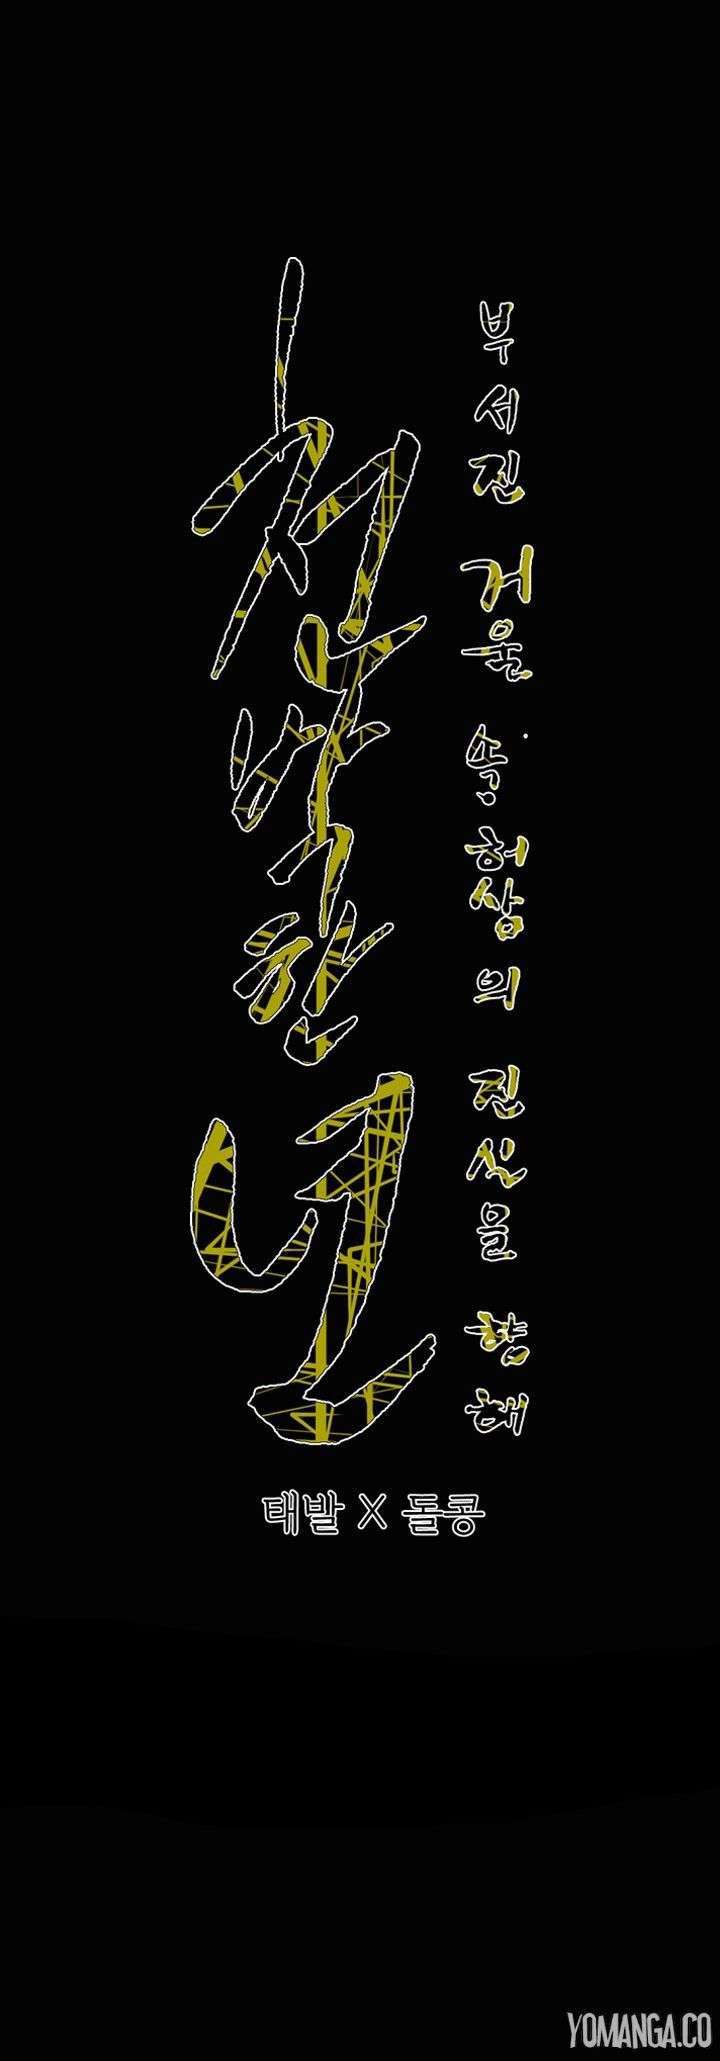 천박한 년
부서진 거울 속 허상의 진실을 향해
태발 X 돌콩
YOMANGA.CO